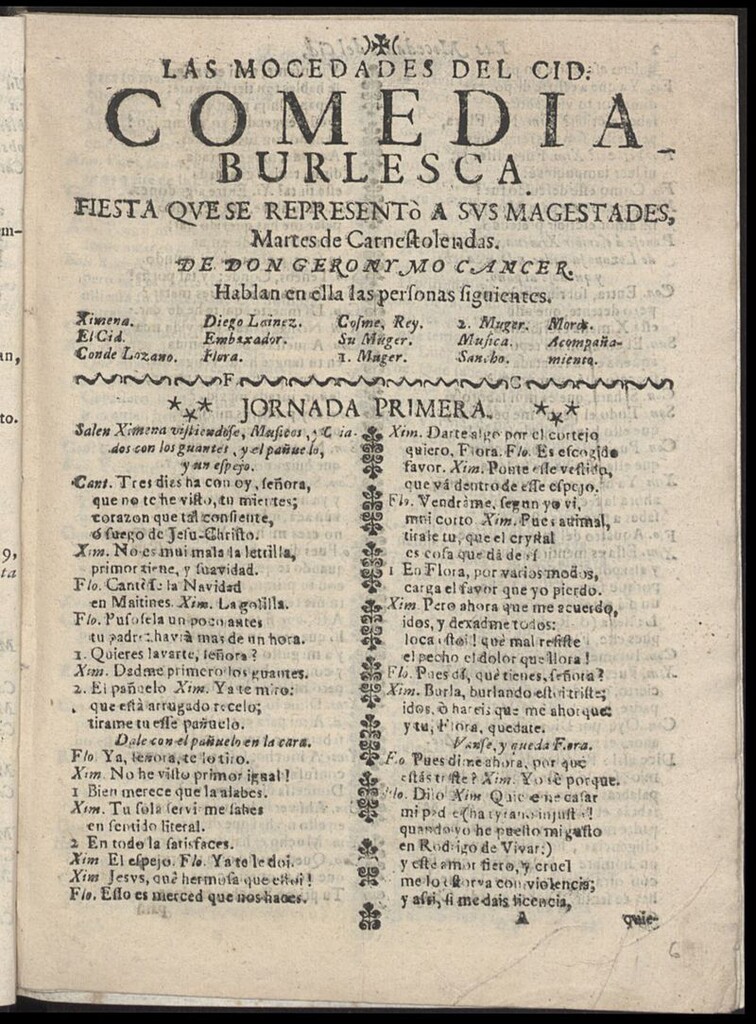 LAS MOCEDADES DEL CID.
COMEDIA
BURLESCA.
FIESTA QVE SE REPRESENTÒ A SVS MAGESTADES,
Martes de Carnestolendas.
DE DON GERONYMO CANCER.
Hablan en ella las personas siguientes.
Ximena. Diego Lainez. Cosme, Rey. 2. Muger. Moros.
El Cid. Embaxador. Su Muger. Musica. Acompaña-
Conde Lozano. Flora. 1. Muger. Sancho. miento.
F C
JORNADA PRIMERA.
Salen Ximena vistiendose, Musicos, y Cria-
dos con los guantes, y el pañuelo,
y un espejo.
Cant. Tres dies ha con oy, señora,
que no te he visto, tu mientes;
corazon que tal consiente,
ò fuego de Jesu-Christo.
Xim. No es mui mala la letrilla,
primor tiene, y suavidad.
Flo. Cantòse la Navidad
en Maitines. Xim. La golilla.
Flo. Pusosela un poco antes
tu padre: havrà mas de un hora.
1. Quieres lavarte, señora?
Xim. Dadme primero los guantes.
2. El pañuelo Xim. Ya te miro:
que està arrugado recelo;
tirame tu esse pañuelo.
Dale con el pañuelo en la cara.
Flo. Ya, señora, te lo tiro.
Xim. No he visto primor igual!
1 Bien merece que la alabes.
Xim. Tu sola servirme sabes
en sentido literal.
2 En todo la satisfaces.
Xim El espejo. Flo. Ya te le doi.
Xim Jesvs, què hermosa que estoi!
Flo. Esso es merced que nos haces.
Xim. Darte algo por el cortejo
quiero, Flora. Flo. Es escogido
favor. Xim. Ponte esse vestido,
que và dentro de esse espejo.
Flo. Vendràme, segun yo vi,
mui corto Xim. Pues animal,
tirale tu, que el crystal
es cosa que dà de sì
1 En Flora, por varios modos,
carga el favor que yo pierdo.
Xim. Pero ahora que me acuerdo,
idos, y dexadme todos:
loca estoi! què mal resiste
el pecho el dolor que llora!
Flo. Pues dì, què tienes, señora?
Xim. Burla, burlando estoi triste;
idos, ò hareis que me ahorque:
y tu, Flora, quedate.
Vanse, y queda Flora.
Flo Pues dime ahora, por què
estàs triste? Xim. Yo sè porque.
Flo. Dilo Xim Quiereme casar
mi padre (ha tyrano injusto!
quando yo he puesto mi gusto
en Rodrigo de Vivar:)
y este amor fiero, y cruel
me lo estorva con violencia;
y assi, si me dais licencia,
A quie-
6